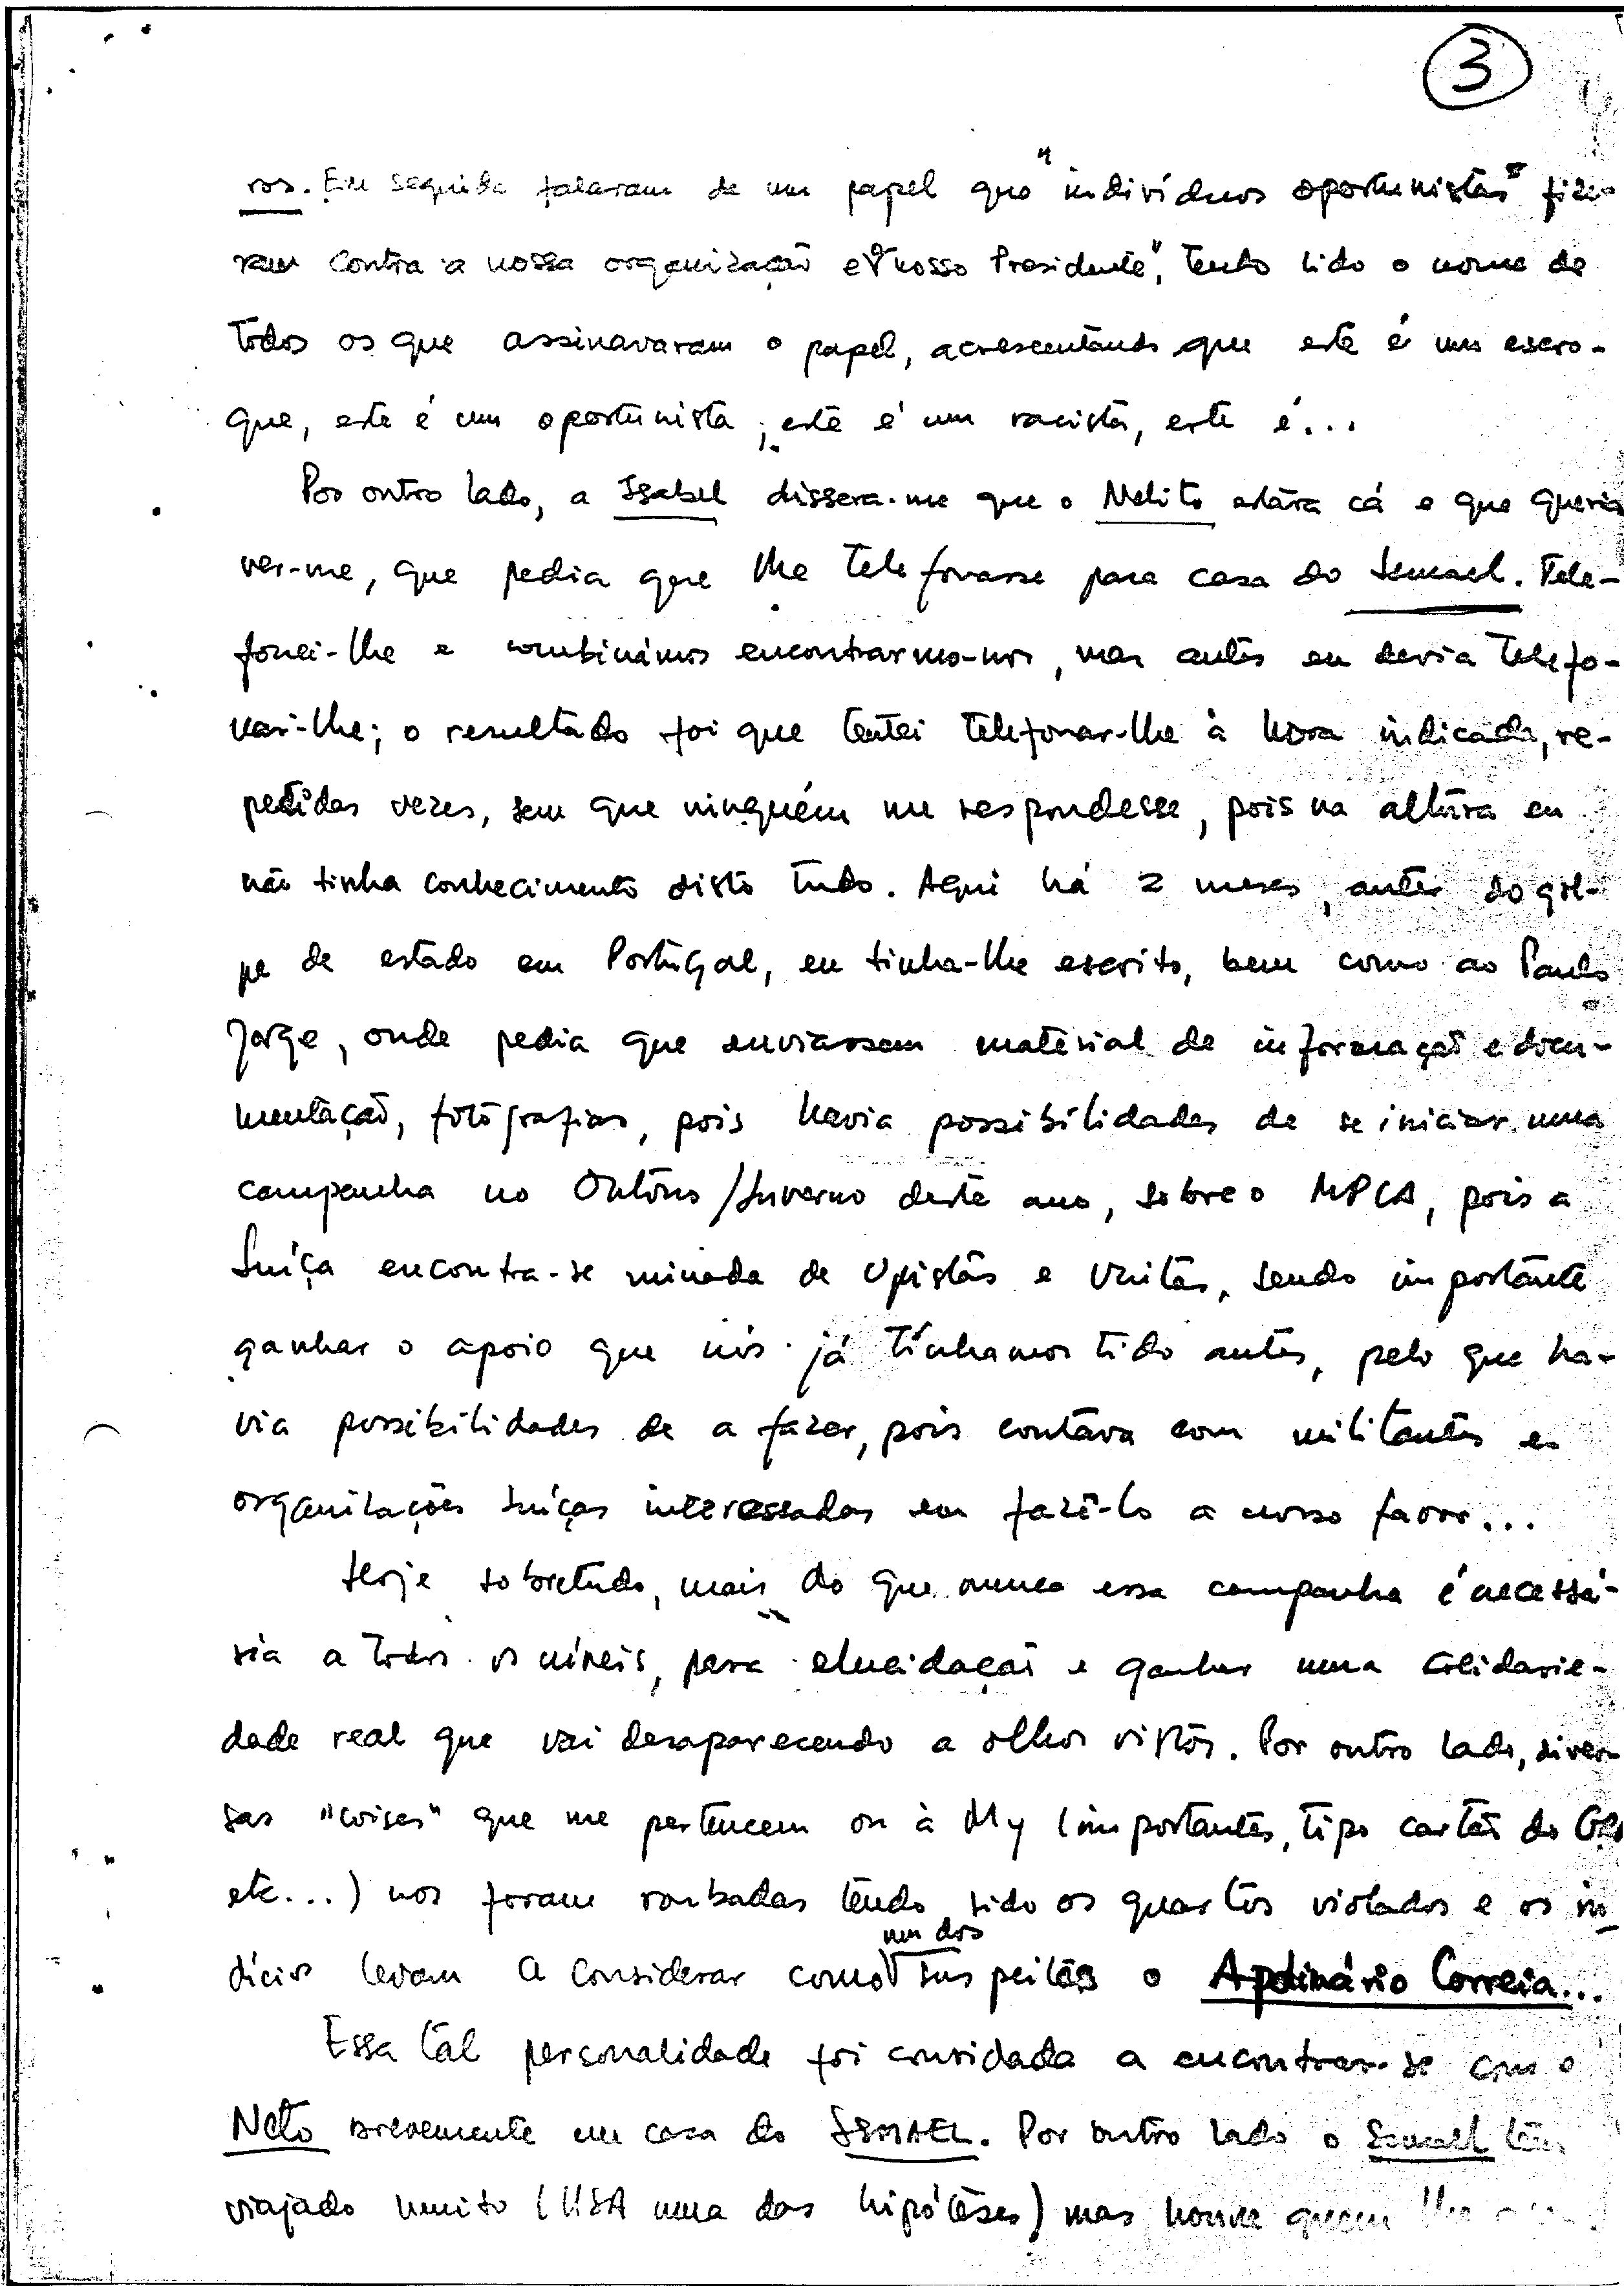 3
ros. Em seguida falaram de um papel que "indivíduos oportunistas" fize-
ram contra a nossa organização e "o nosso Presidente", tendo lido o nome de
todos os que assinavaram o papel, acrescentando que este é um escro-
que, este é um oportunista, este é um racista, este é...
Por outro lado, a Isabel dissera-me que o Nelito estava cá e que queria
ver-me, que pedia que lhe telefonasse para casa do Ismael. Tele-
fonei-lhe e combinámos encontrarmo-nos, mas antes eu devia telefo-
nar-lhe; o resultado foi que tentei telefonar-lhe à hora indicada, re-
petidas vezes, sem que ninguém me respondesse, pois na altura eu
não tinha conhecimento disto tudo. Aqui há 2 meses, antes do gol-
pe de estado em Portugal, eu tinha-lhe escrito, bem como ao Paulo
Jorge, onde pedia que enviassem material de informação e docu-
mentação, fotografias, pois havia possibilidades de se iniciar uma
campanha no Outono/Inverno deste ano, sobre o MPLA, pois a
Suíça encontra-se minada de Upistas e Unitas, sendo importante
ganhar o apoio que nós já tínhamos tido antes, pelo que ha-
via possibilidades de a fazer, pois contava com militantes e
organizações suíças interessadas em fazê-lo a nosso favor...
Hoje sobretudo, mais do que nunca essa campanha é necessá-
ria a todos os níveis, para elucidação e ganhar uma solidarie-
dade real que vai desaparecendo a olhos vistos. Por outro lado, diver-
sas "coisas" que me pertencem ou à My (importantes, tipo cartão do
etc...) nos foram roubadas tendo sido os quartos violados e os in-
dícios levam a considerar como um dos suspeitos o Apolinário Correia...
Essa tal personalidade foi convidada a encontrar-se com o
Neto brevemente em casa do ISMAEL. Por outro lado o Ismael tem
viajado muito (USA uma das hipóteses) mas houve quem lhe